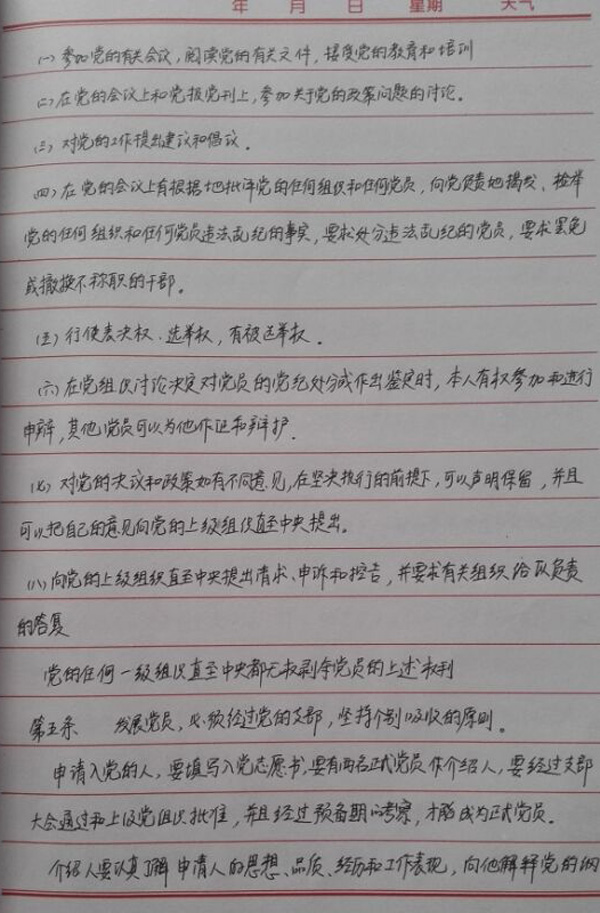 年 月 日 星期 天气
(一)参加党的有关会议,阅读党的有关文件,接受党的教育和培训
(二)在党的会议上和党报党刊上,参加关于党的政策问题的讨论。
(三)对党的工作提出建议和倡议。
(四)在党的会议上有根据地批评党的任何组织和任何党员,向党负责地揭发、检举
党的任何组织和任何党员违法乱纪的事实,要求处分违法乱纪的党员,要求罢免
或撤换不称职的干部。
(五)行使表决权、选举权,有被选举权。
(六)在党组织讨论决定对党员的党纪处分或作出鉴定时,本人有权参加和进行
申辩,其他党员可以为他作证和辩护.
(七)对党的决议和政策如有不同意见,在坚决执行的前提下,可以声明保留,并且
可以把自己的意见向党的上级组织直至中央提出。
(八)向党的上级组织直至中央提出请求、申诉和控告,并要求有关组织给以负责
的答复
党的任何一级组织直至中央都无权剥夺党员的上述权利
第五条 发展党员,必须经过党的支部,坚持个别吸收的原则。
申请入党的人,要填写入党志愿书,要有两名正式党员作介绍人,要经过支部
大会通过和上级党组织批准,并且经过预备期的考察,才能成为正式党员。
介绍人要认真了解申请人的思想、品质、经历和工作表现,向他解释党的纲